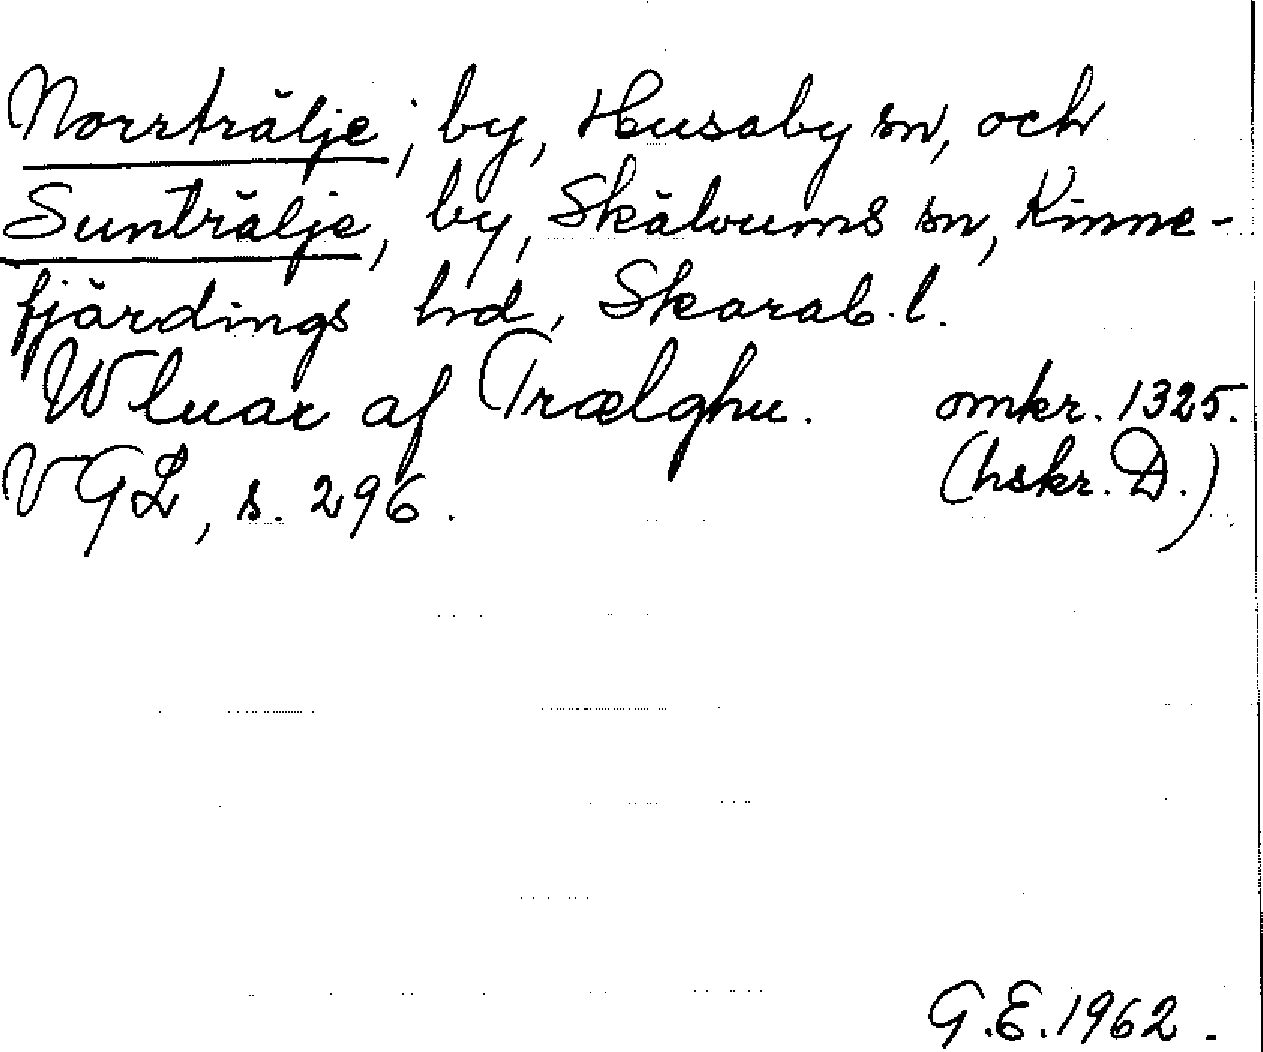 Norrträlje, by, Husaby sn, och
Sunträlje, by, Skälvums sn, Kinne-
fjärdings hd, Skarab. l.
Wluar af Trælghu. omkr. 1325.
VGL, s. 296. (hskr. D.)
G.E. 1962.